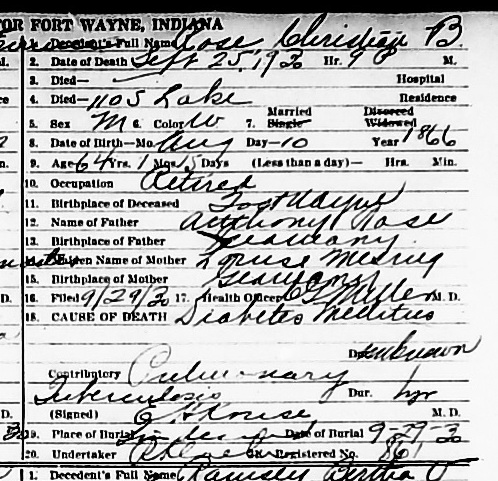 OR FORT WAYNE, INDIANA
1. Decedent's Full Name Rose Christian B.
2. Date of Death Sept 25, 1930 Hr. 9 P M.
3. Died— Hospital
4. Died— 1105 Lake Residence
5. Sex M 6. Color W 7. Married Single Divorced Widowed
8. Date of Birth—Mo. Aug Day—10 Year 1866
9. Age 64 Yrs. 1 Mos. 15 Days (Less than a day)— Hrs. Min.
10. Occupation Retired
11. Birthplace of Deceased Fort Wayne
12. Name of Father Anthony Rose
13. Birthplace of Father Germany
14. Maiden Name of Mother Louise
15. Birthplace of Mother Germany
16. Filed 9/29/30 17. Health Officer Miller M. D.
18. CAUSE OF DEATH Diabetes Mellitus
Dur. unknown
Contributory Pulmonary
Tuberculosis Dur. 1 yr
(Signed) E. H. Kruse M. D.
19. Place of Burial Lindenwood Date of Burial 9-29-30
20. Undertaker Registered No. 861
1. Decedent's Full Name Ramsey Bertha